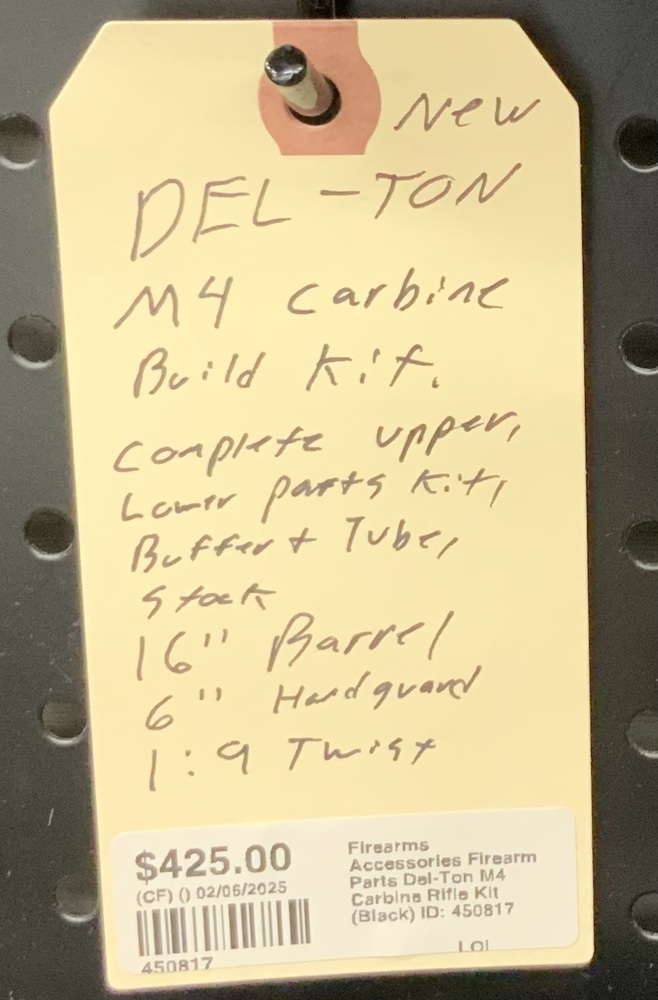 New
DEL-TON
M4 Carbine
Build Kit.
Complete upper,
Lower parts Kit,
Buffer + Tube,
Stock
16" Barrel
6" Handguard
1:9 Twist
$425.00
(CF) () 02/06/2025
450817
Firearms
Accessories Firearm
Parts Del-Ton M4
Carbine Rifle Kit
(Black) ID: 450817